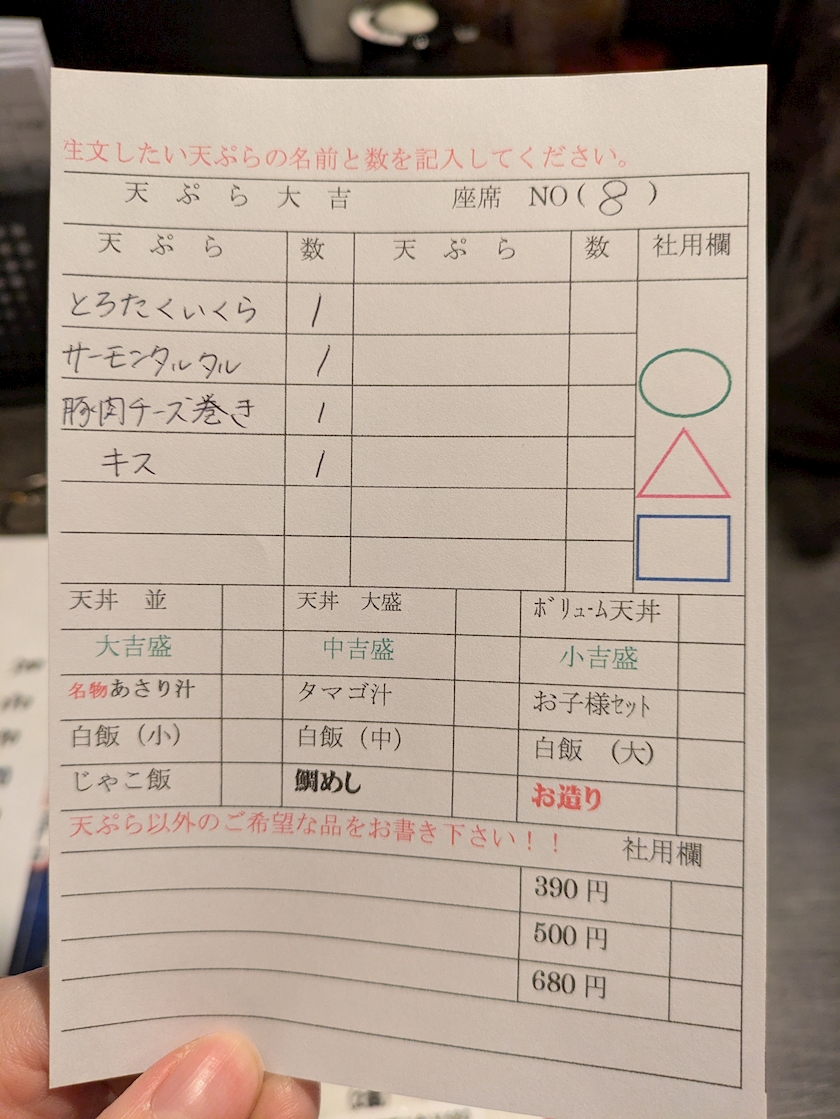 生文したい天ぷらの名前と数を記入してください。
天ぷら大吉 座席 NO(8)
天ぷら 数 天ぷら 数 社用欄
とろたくいくら 1
サーモンタルタル 1
豚肉チーズ巻き 1
キス 1
天丼 並 天丼 大盛 ボリューム天丼
大吉盛 中吉盛 小吉盛
名物あさり汁 タマゴ汁 お子様セット
白飯(小) 白飯(中) 白飯 (大)
じゃこ飯 鯛めし お造り
天ぷら以外のご希望な品をお書き下さい!! 社用欄
390円
500円
680円